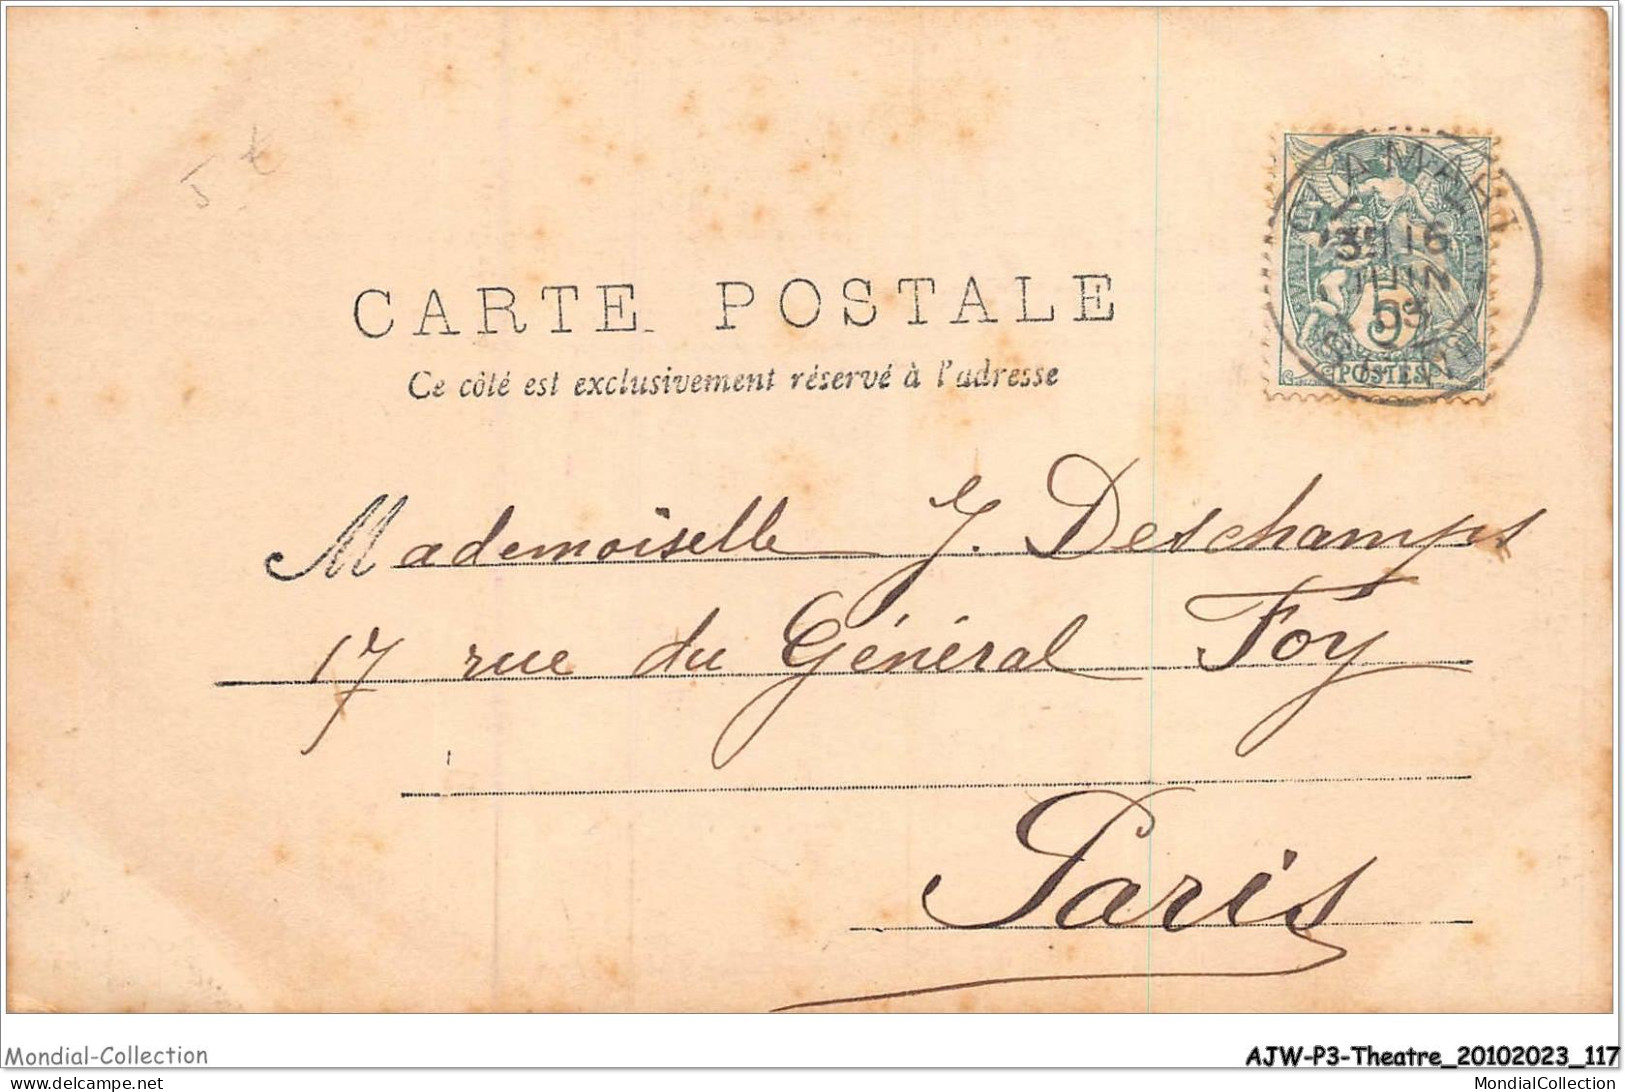 5 €
CARTE POSTALE
Ce côté est exclusivement réservé à l'adresse
16
JUIN
03
5
POSTES
Mademoiselle J. Deschamps
17 rue du Général Foy
Paris
Mondial-Collection
AJW-P3-Theatre_20102023_117
delcampe.net
MondialCollection